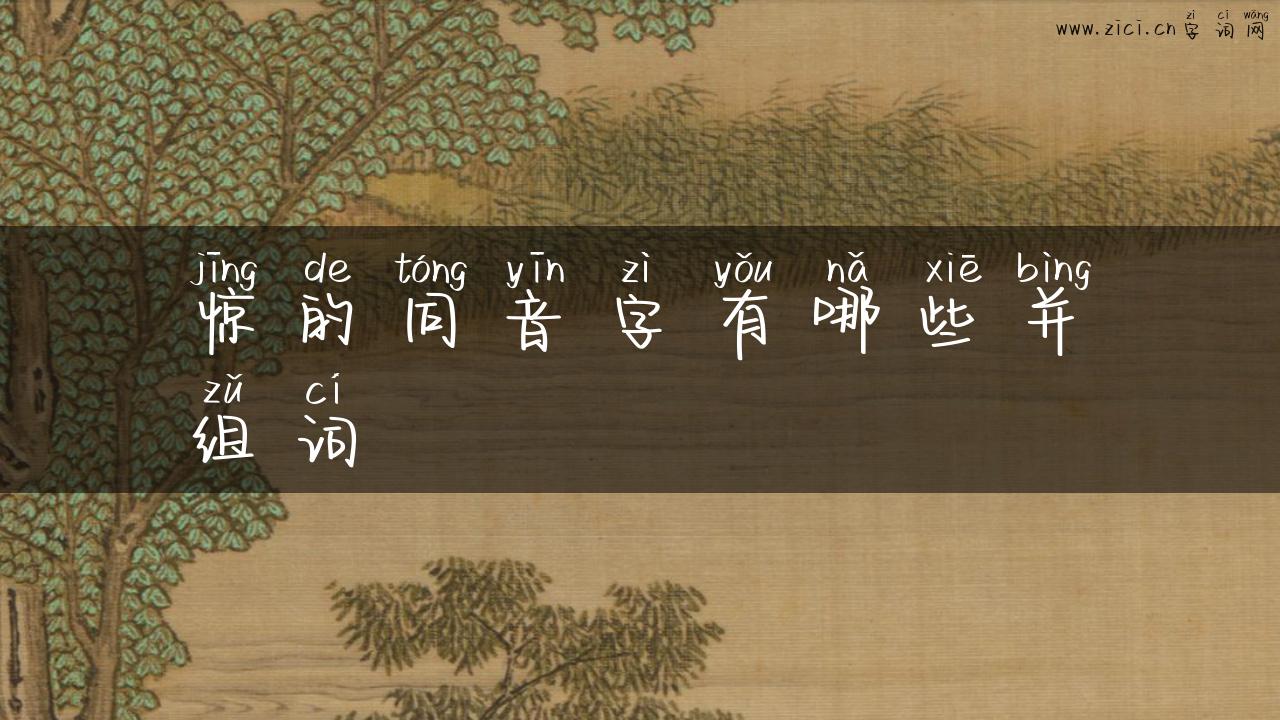 zì cí wǎng
www.zici.cn字词网
jīng de tóng yīn zì yǒu nǎ xiē bìng
惊的同音字有哪些并
zǔ cí
组词